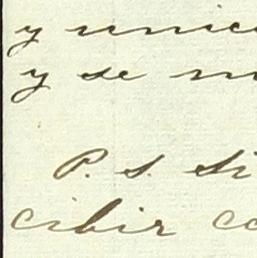 y unic
y se m
P. S. Si
cibir co